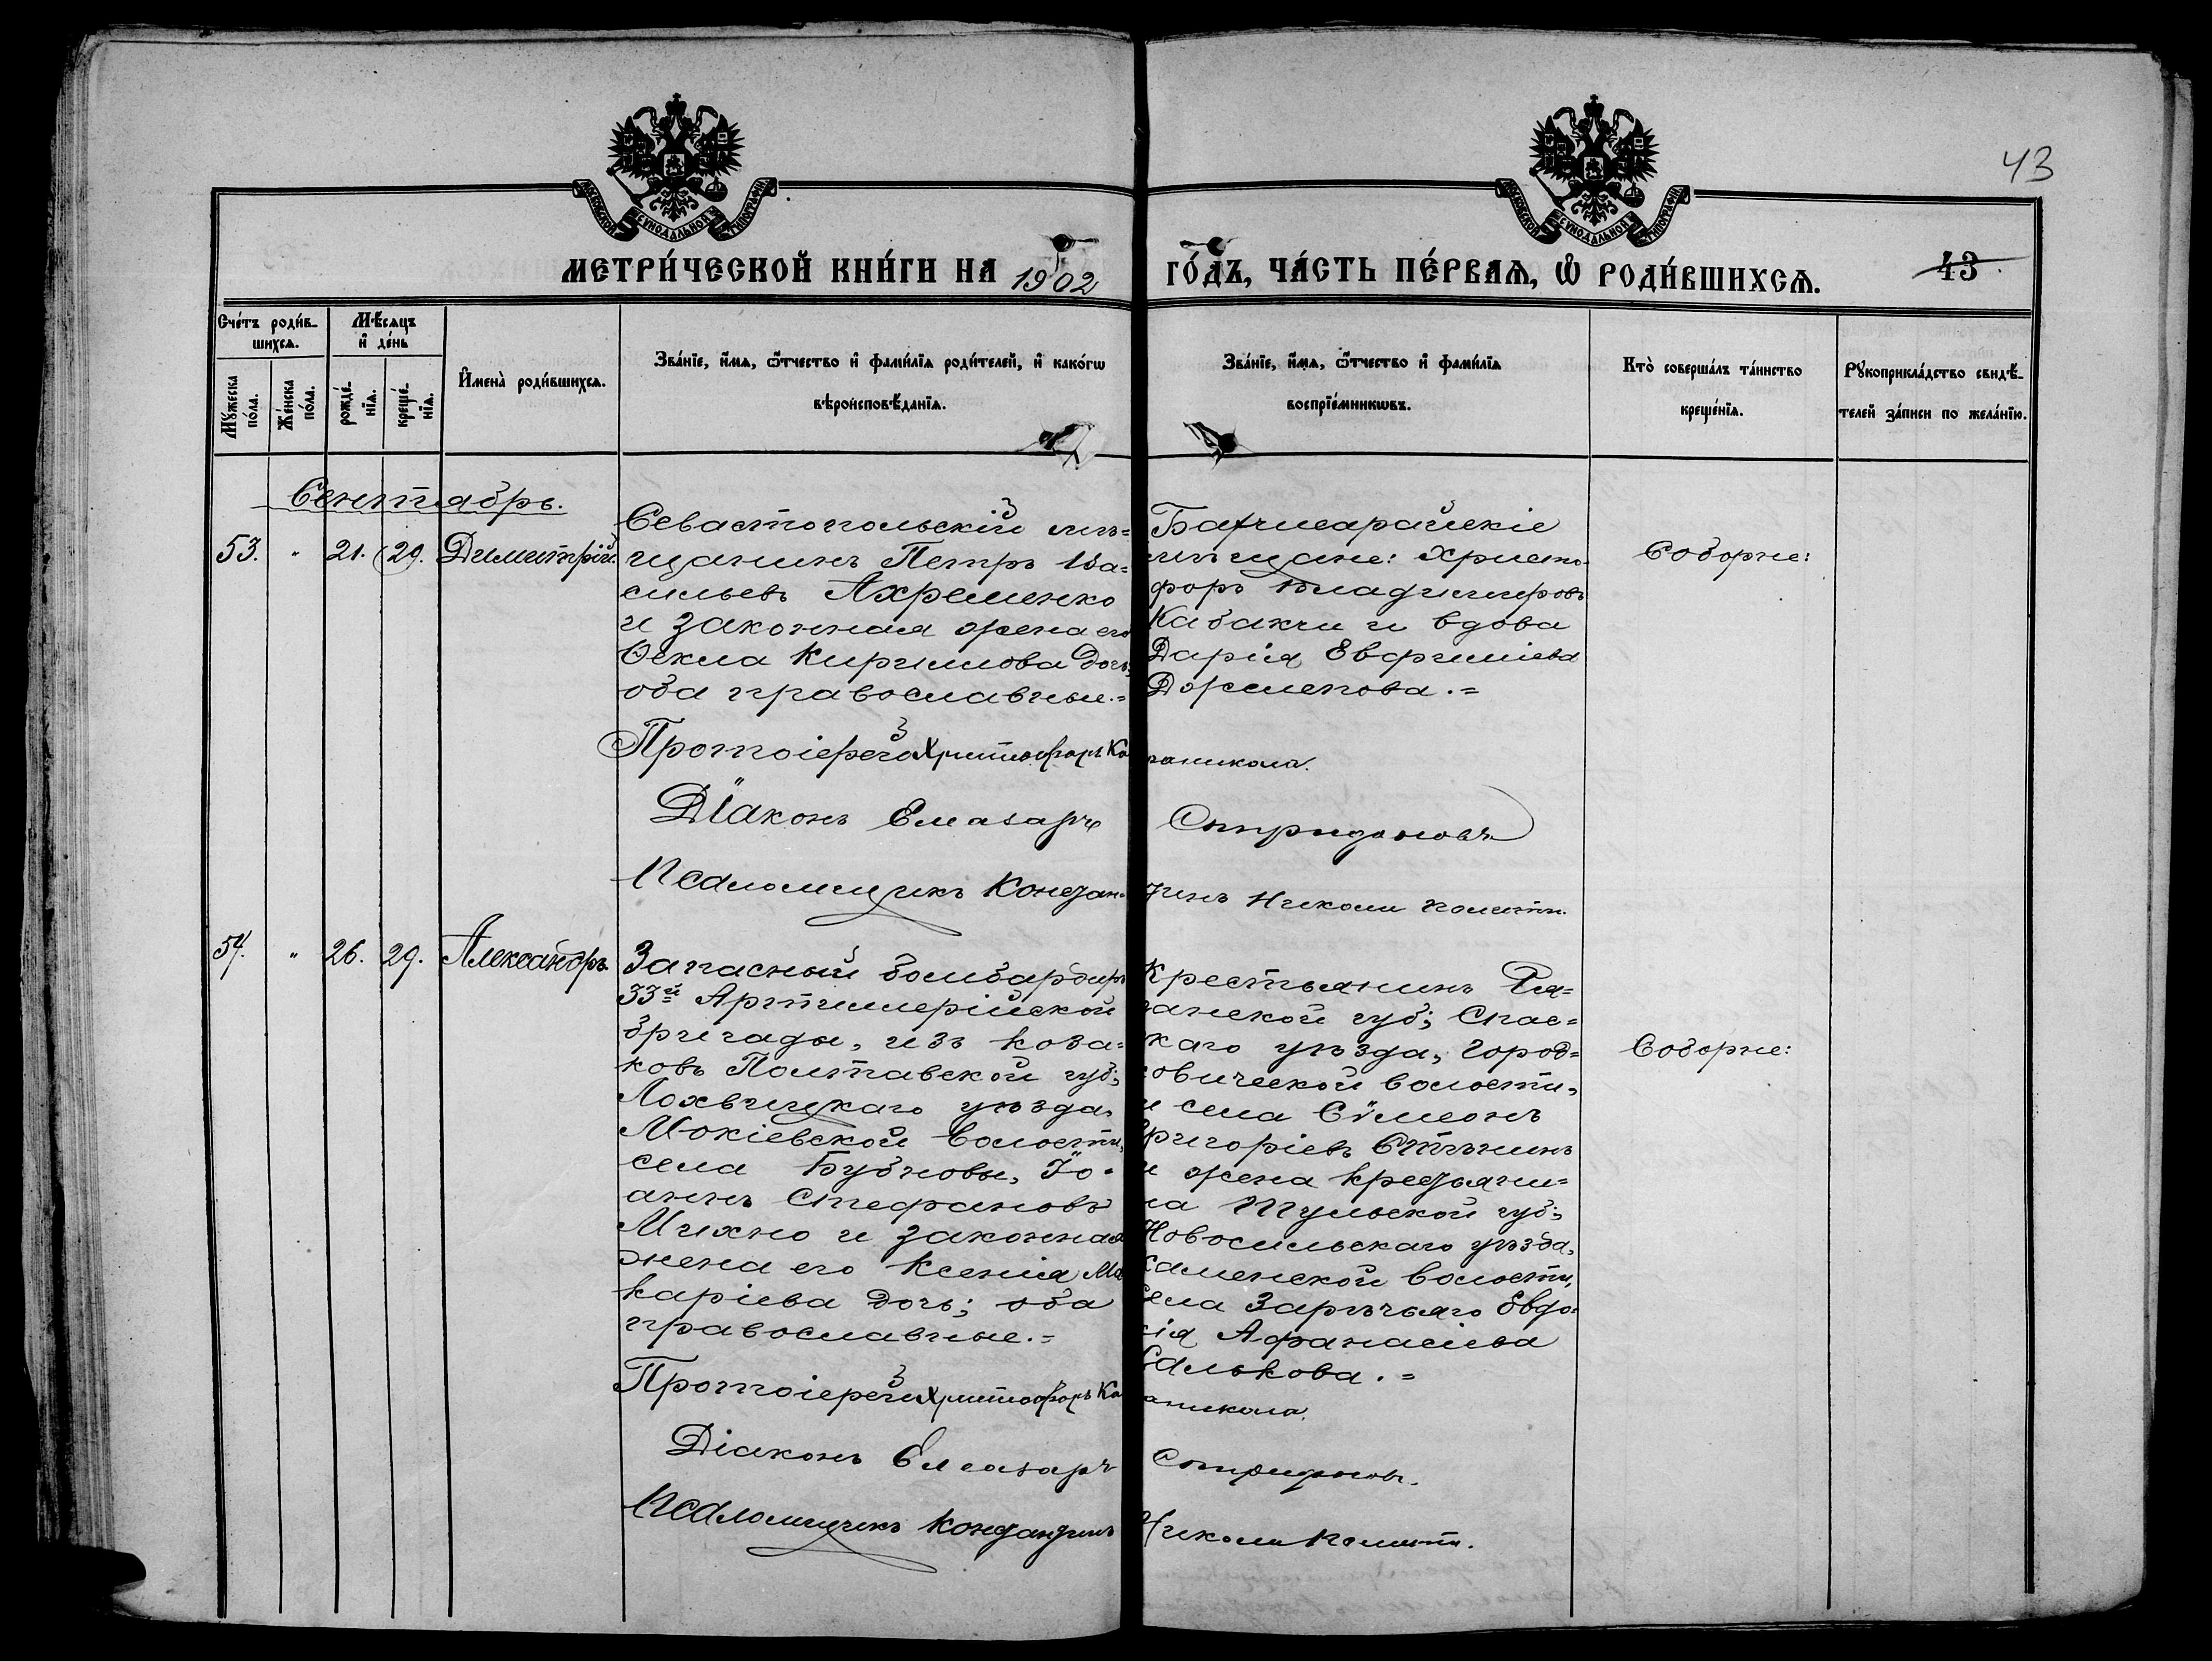 43
МОСКОВСКОЙ СУНОДАЛЬНОЙ ТИПОГРАФІИ
МОСКОВСКОЙ СУНОДАЛЬНОЙ ТИПОГРАФІИ
МЕТРИ́ЧЕСКОЙ КНИ́ГИ НА 1902
ГО́ДЪ, ЧА́СТЬ ПЕ́РВАѦ, Ѽ РОДИ́ВШИХСѦ.
43
Сче́тъ роди́в-
шихсѧ.
Мꙋ́жеска по́ла.
Же́нска по́ла.
Мѣ́сѧцъ
и҆ де́нь
рожде́-
нїѧ.
креще́-
нїѧ.
И҆мена̀ роди́вшихсѧ.
Зва́нїе, и҆́мѧ, ѻ҆́тчество и҆ фами́лїѧ роди́телей, и҆ како́гѡ
вѣроисповѣ́данїѧ.
Зва́нїе, и҆́мѧ, ѻ҆́тчество и҆ фами́лїѧ
воспрїе́мникѡвъ.
Кто̀ соверша́лъ та́инство
креще́нїѧ.
Рꙋкоприкла́дство свидѣ́-
телей за́писи по жела́нїю.
Сентябрь.
53. " 21. 29. Димитрій.
Севастопольскій мѣ=
щанинъ Петръ Ва=
сильевъ Ахременко
и законная жена его
Ѳекла Кириллова дочь;
оба православные.=
Бахчисарайскіе
мѣщане: Христо-
форъ Владиміровъ
Кабакчи и вдова
Дарія Евфиміева
Дожсменова.=
Соборне:
Протоіерей Христофоръ Ка
раникола.
Діаконъ Елеазаръ Спиридоновъ
Псаломщикъ Констан-
тинъ Николи Полити.
54. " 26. 29. Александръ.
Запасный бомбардиръ
33й Артиллерійской
бригады, изъ коза=
ковъ Полтавской губ;
Лохвицкаго уѣзда,
Мокіевской волости,
села Бубновы, Іо=
аннъ Стефановъ
Михно и законная
жена его Ксенія Ма
каріева дочь; оба
православные.=
Крестьянинъ Ря=
занской губ; Спас=
скаго уѣзда, Город=
ковической волости,
и села Сѵмеонъ
Григоріевъ Стѣнинъ
и жена крестьяни=
на Тульской губ;
Новосильскаго уѣзда,
Каменской волости,
села Зарѣчьяго Евдо=
кія Афанасіева
Соборне:
Протоіерей Христофоръ Ка
раникола.
Діаконъ Елеазаръ Спиридоновъ.
Псаломщикъ Константинъ Николи Полити.